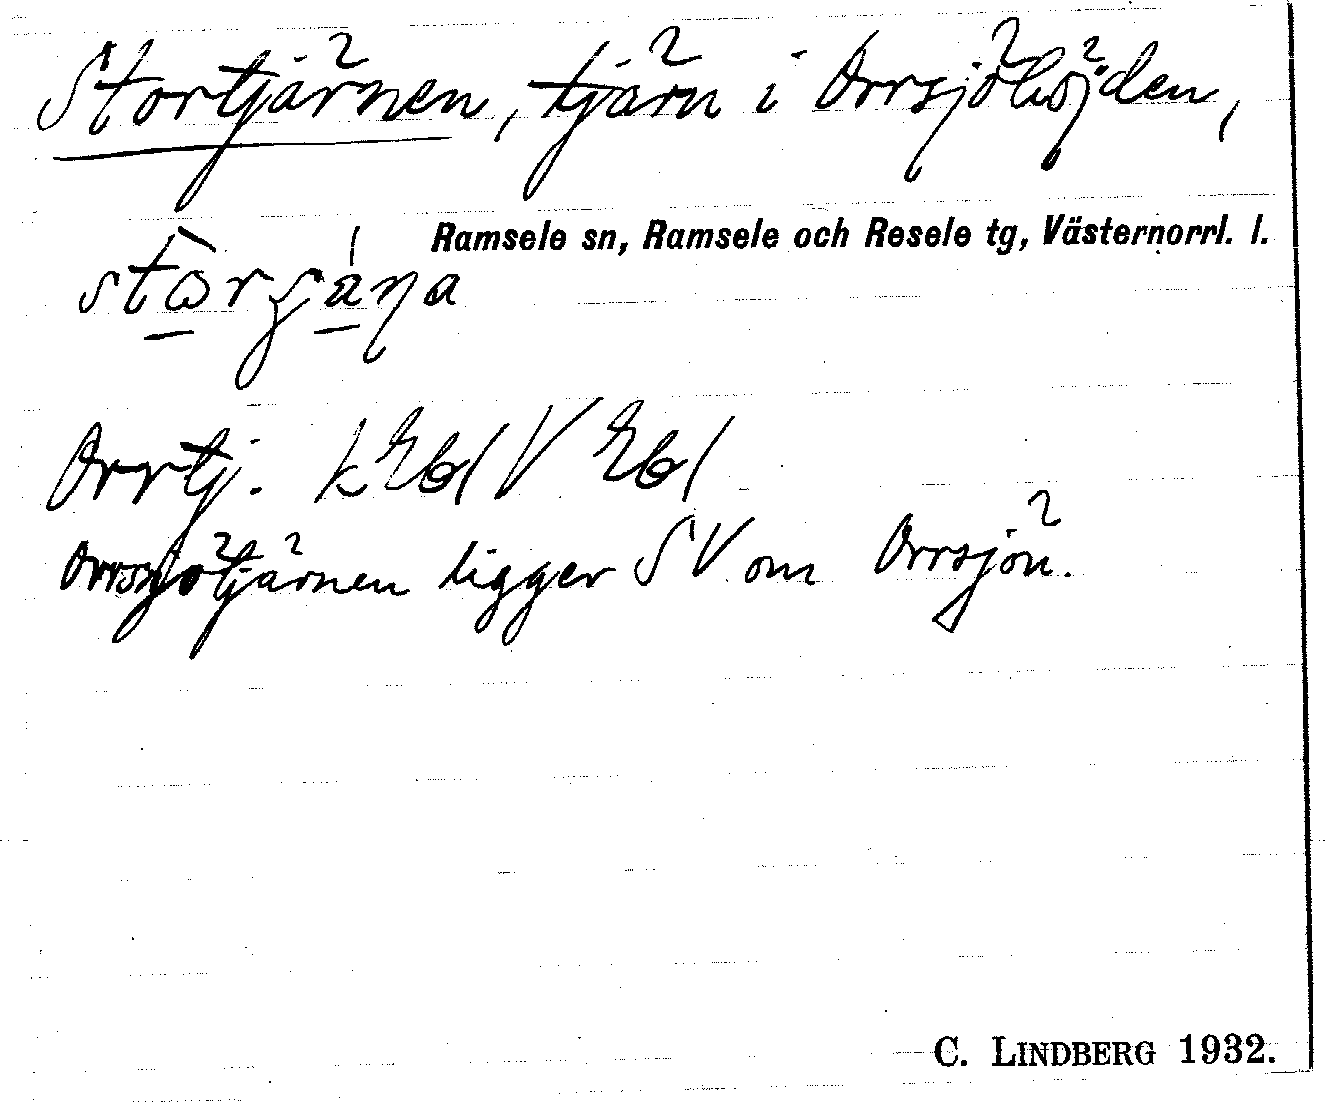 Stortjärnen, tjärn i Orrsjöhöjden,
Ramsele sn, Ramsele och Resele tg, Västernorrl. l.
Orrtj. k Ebl V Ebl
Orrsjötjärnen ligger SV om Orrsjön.
C. LINDBERG 1932.